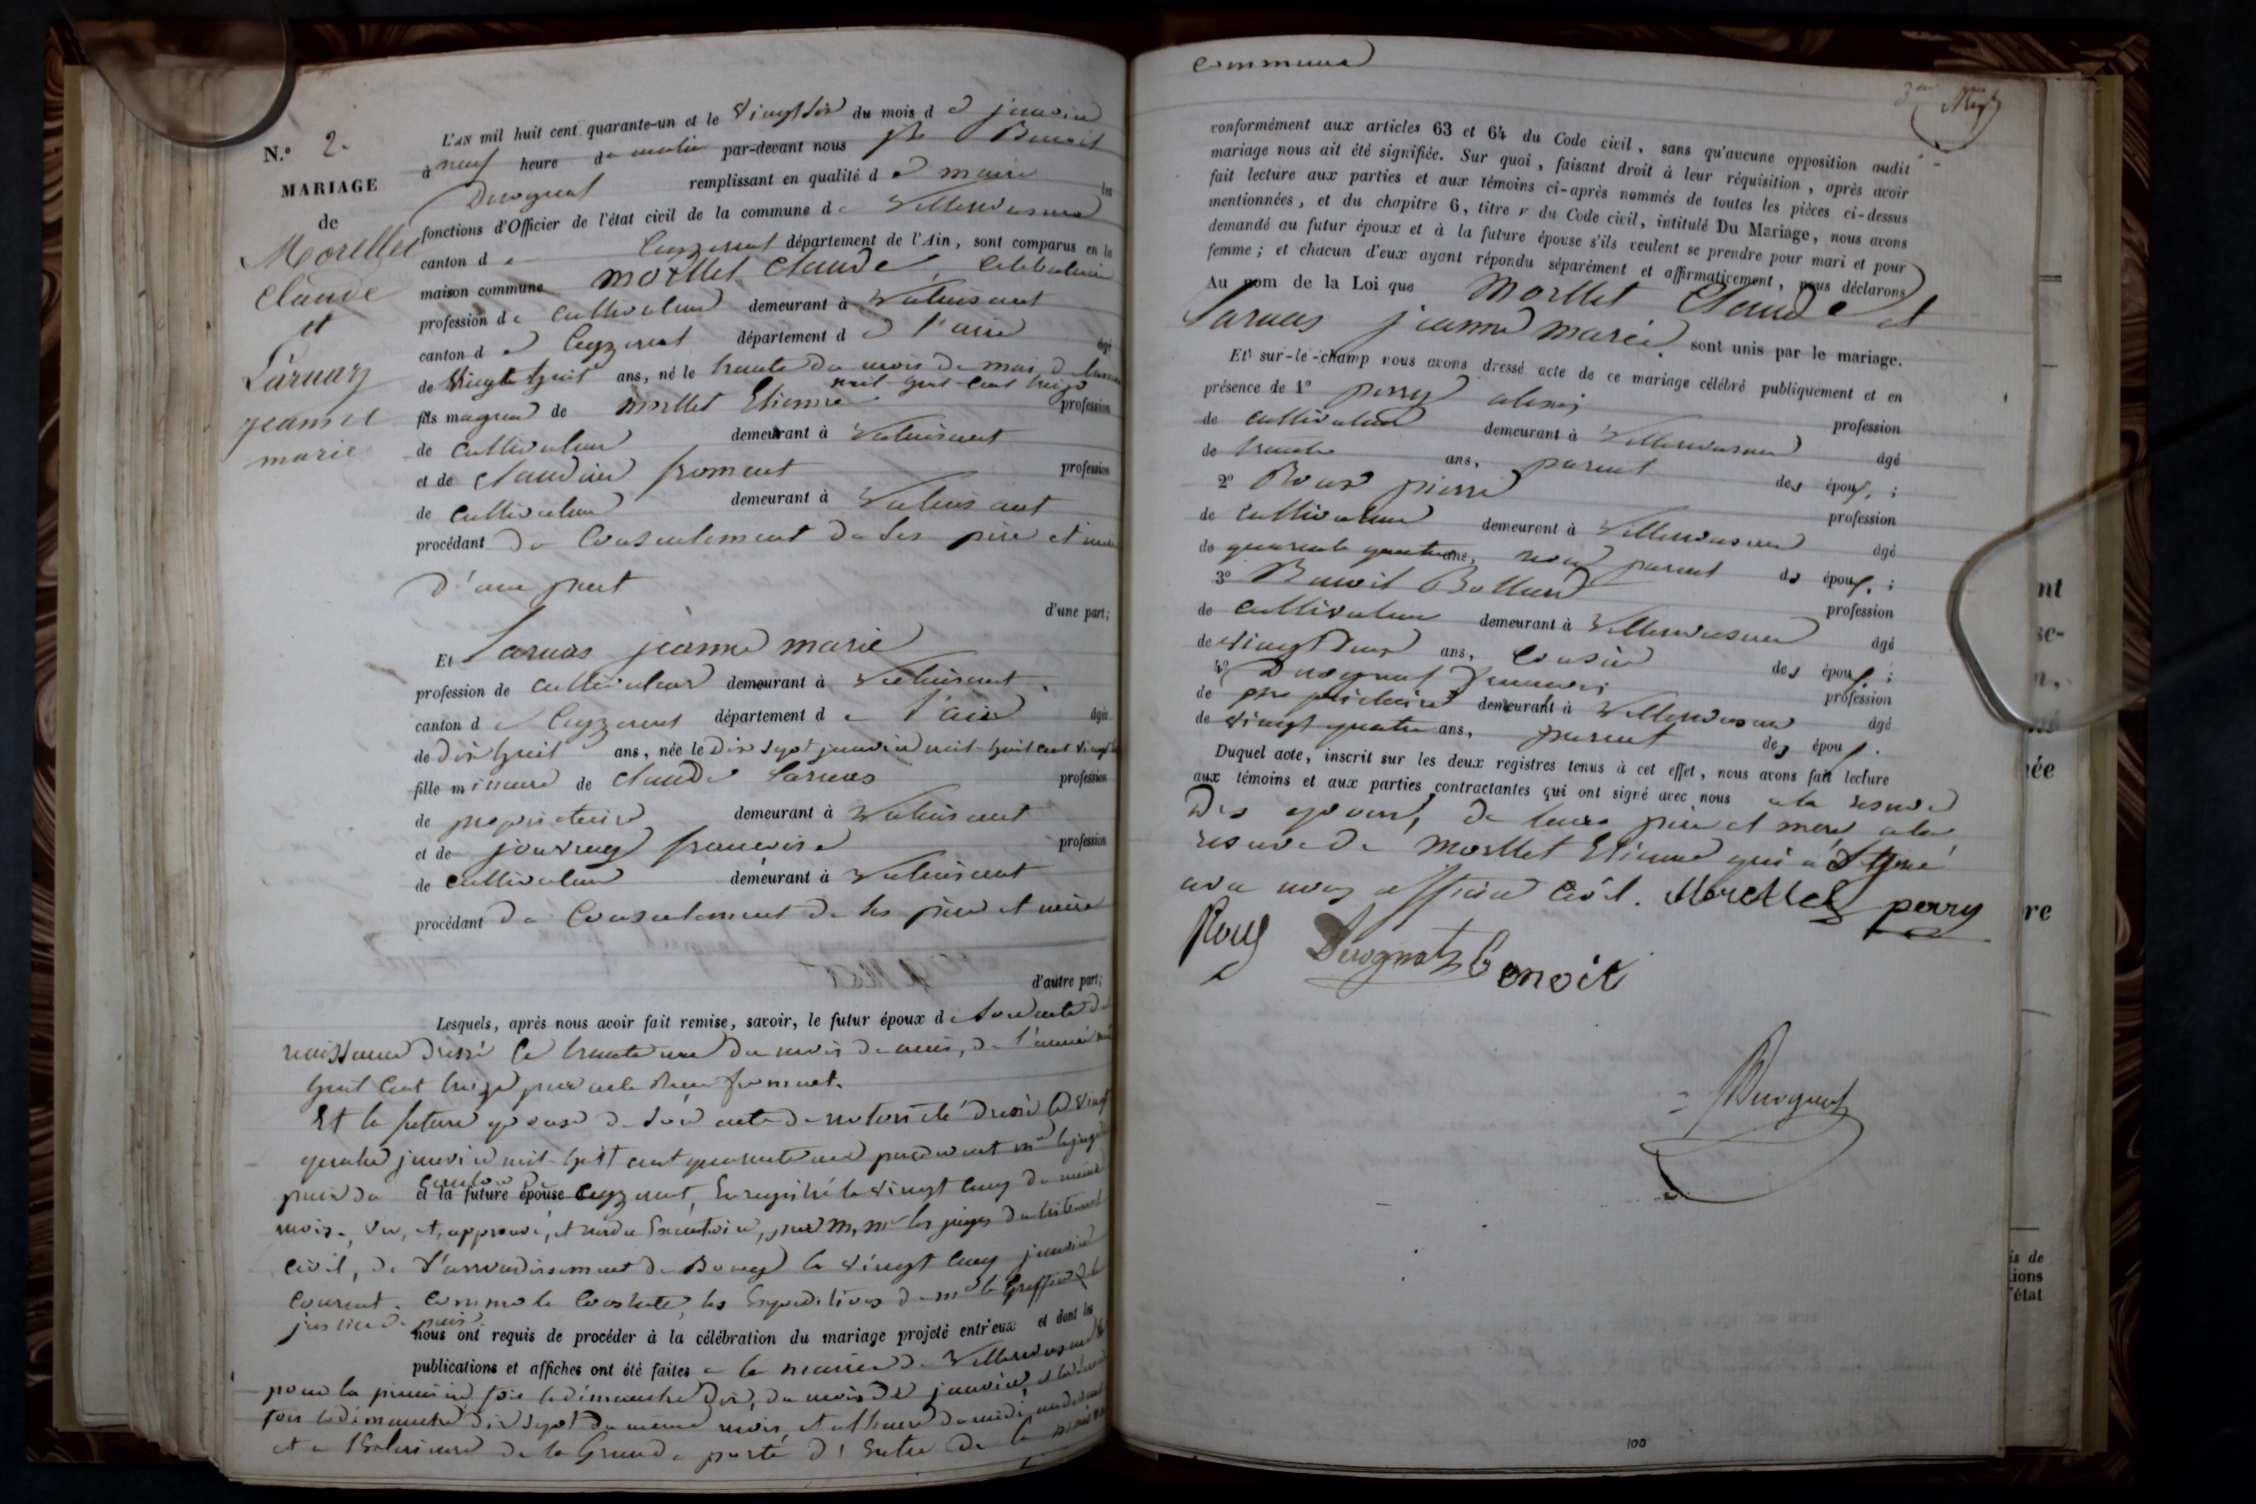 N.° 2.
MARIAGE
de
Morellet
Claude
et
Laruaz
jeanne
marie
L'AN mil huit cent quarante-un et le Vingt six du mois d e janvier
à neuf heure du matin par-devant nous Benoit
Durognat remplissant en qualité d e maire les
fonctions d'Officier de l'état civil de la commune d e Villereversure
canton d e Ceyzeriat département de l'Ain, sont comparus en la
maison commune morellet Claude, Celibataire
profession de cultivateur demeurant à Valuisant
canton d e Ceyzeriat département d e l'ain âgé
de Vingt huit ans, né le trente du mois de mai de l'année
mil huit cent treize
fils majeur de morellet Etienne profession
de cultivateur demeurant à Valuisant
et de Claudine froment profession
de cultivateur demeurant à Valuisant
procédant du Consentement de ses père et mère
d'une part
d'une part;
Et Laruas jeanne marie
profession de cultivateur demeurant à Valuisant
canton d e Ceyzeriat département d e l'ain âgée
de dix huit ans, née le dix sept janvier mil huit cent vingt
fille mineure de Claude Laruas profession
de propriétaire demeurant à Valuisant
et de francoise profession
de cultivateur demeurant à Valuisant
procédant du Consentement de ses père et mère
d'autre part;
Lesquels, après nous avoir fait remise, savoir, le futur époux d e son acte de
naissance dressé le trente une du mois de mai, de l'année mil
huit Cent treize
Et la future epouse de son acte de notoriété dressé le vingt
quatre janvier mil huit cent quarante un pardevant mr le juge de
paix du canton de et la future épouse Ceyzeriat, Enregistré le vingt cinq du même
mois, vu, et approuvé, et rendu Exécutoire, par m, mrs les juges du tribunal
civil, de l'arrondissement de Bourg le vingt cinq janvier
courant. comme le Constate, les Expeditions de mr le Greffier de la
justice de paix
nous ont requis de procéder à la célébration du mariage projeté entr'eux et dont les
publications et affiches ont été faites à la mairie de Villereversure
pour la première fois le dimanche dix, du mois de janvier, et la seconde
fois le dimanche dix sept du même mois, et a l'heure de midi
et a l'Extérieure de la Grande porte d'Entrée de la maison
commune
conformément aux articles 63 et 64 du Code civil, sans qu'aucune opposition audit
mariage nous ait été signifiée. Sur quoi, faisant droit à leur réquisition, après avoir
fait lecture aux parties et aux témoins ci-après nommés de toutes les pièces ci-dessus
mentionnées, et du chapitre 6, titre v du Code civil, intitulé Du Mariage, nous avons
demandé au futur époux et à la future épouse s'ils veulent se prendre pour mari et pour
femme; et chacun d'eux ayant répondu séparément et affirmativement, nous déclarons
Au nom de la Loi que Morellet Claude et
Laruas jeanne marie sont unis par le mariage.
Et sur-le-champ nous avons dressé acte de ce mariage célébré publiquement et en
présence de 1° perry alexis profession
de cultivateur demeurant à Villereversure âgé
de trente ans, parent des époux;
2° Roux pierre profession
de cultivateur demeurant à Villereversure âgé
de quarente quatre ans, non parent des époux;
3° Benoit Bolland profession
de cultivateur demeurant à Villereversure âgé
de vingt deux ans, cousin des époux;
4° Durognat francois profession
de propriétaire demeurant à Villereversure âgé
de vingt quatre ans, parent des époux.
Duquel acte, inscrit sur les deux registres tenus à cet effet, nous avons fait lecture
aux témoins et aux parties contractantes qui ont signé avec nous a la reserve
des epoux, de leurs père et mère, a la
reserve de Morellet Etienne qui a Signé
avec nous officier Civil. Morellet perry
Roux Durognat Benoit
Durognat
100